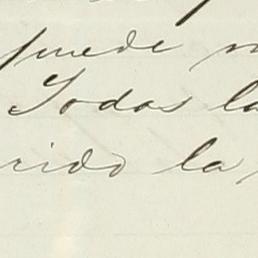 puede
Todas la
rido la